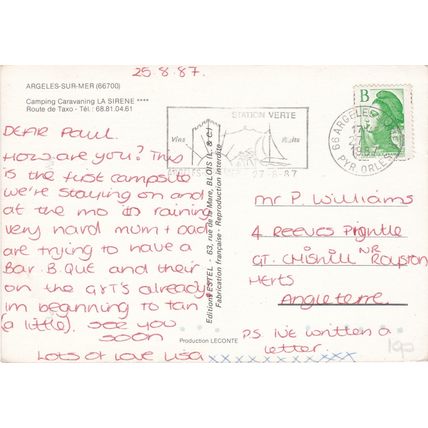 25.8.87.
ARGELES-SUR-MER (66700)
Camping Caravaning LA SIRENE ****
Route de Taxo - Tél : 68.81.04.61
DEAR Paul.
How are you? This
is the first campsite
we're staying on and
at the mo its raining
very hard mum + dad
are trying to have a
Bar. B. Que and their
on the G+T's already
im beginning to tan
(a little). see you
soon
Lots of love Lisa xxxxxxxxxxx
STATION VERTE
Vins
27-8-87
B
66 ARGELES
PYR. ORLES
1987
Editions ESTEL - 63, rue de la Mare, BLOIS (L. & C.)
Fabrication française - Reproduction interdite
Mr P. Williams
4 Reeves Pightle
GT. Chishill NR Royston
Herts
Angleterre.
P.S I've written a
letter.
Production LECONTE
10p